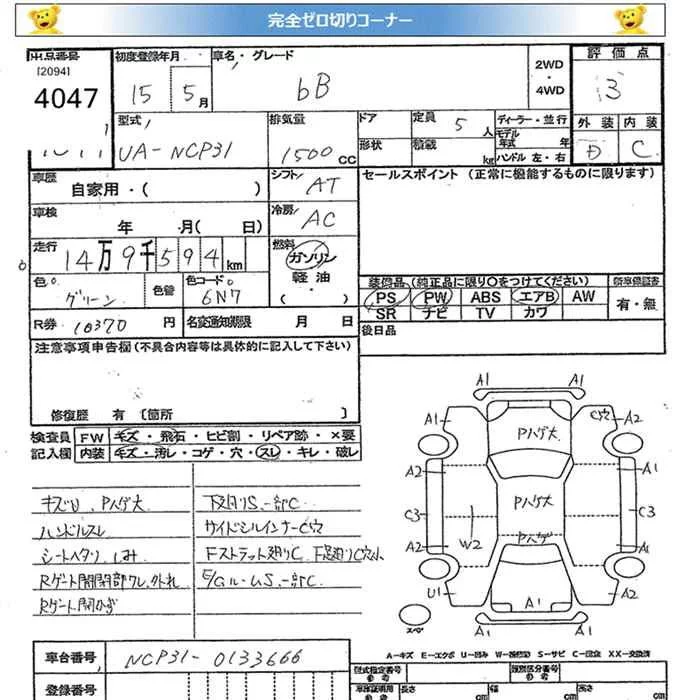 完全ゼロ切りコーナー
出品番号 初度登録年月 車名・グレード 2WD ・ 4WD 評価点
[2094]
4047 15 5月 bB 3
型式 排気量 ドア 定員 5人 ディーラー・並行 外装 内装
モデル 年式 年
UA-NCP31 1500cc 形状 積載 kg ハンドル 左・右 D C
車歴 自家用・( ) シフト AT セールスポイント (正常に機能するものに限ります)
車検 年 月( 日) 冷房 AC
走行 14万9千594km 燃料 ガソリン・軽油・( )
色 グリーン 色替 色コード 6N7
装備品(純正品に限り○をつけてください) 新車保証書
PS PW ABS エアB AW 有・無
SR ナビ TV カワ
R券 10370円 名変通知期限 月 日 後日品
注意事項申告欄(不具合内容等は具体的に記入して下さい)
修復歴 有 〔箇所 〕
検査員 FW キズ・飛石・ヒビ割・リペア跡・×要
記入欄 内装 キズ・汚レ・コゲ・穴・スレ・キレ・破レ
キズU、Pハゲ大 下廻りS、一部C
ハンドルスレ サイドシルインナーC穴
シートヘタリ、しみ Fストラット廻りC、下廻りC穴小
Rゲート開閉部ワレ、外れ E/Gル-ムS、一部C
Rゲート開かず
A1 A1
A1 Pハゲ大 C穴 A2
A2 A1
C3 W2 Pハゲ大 C3
A2 Pハゲ A1
U1 A1 A2
スペア A1 A1
A-キズ E-エクボ U-凹み W-補修跡 S-サビ C-腐食 XX-交換済
車台番号 NCP31-0133666 型式指定番号 参考 類別区分番号 参考
登録番号 車検証明用 参考 長さ cm 幅 cm 高さ cm